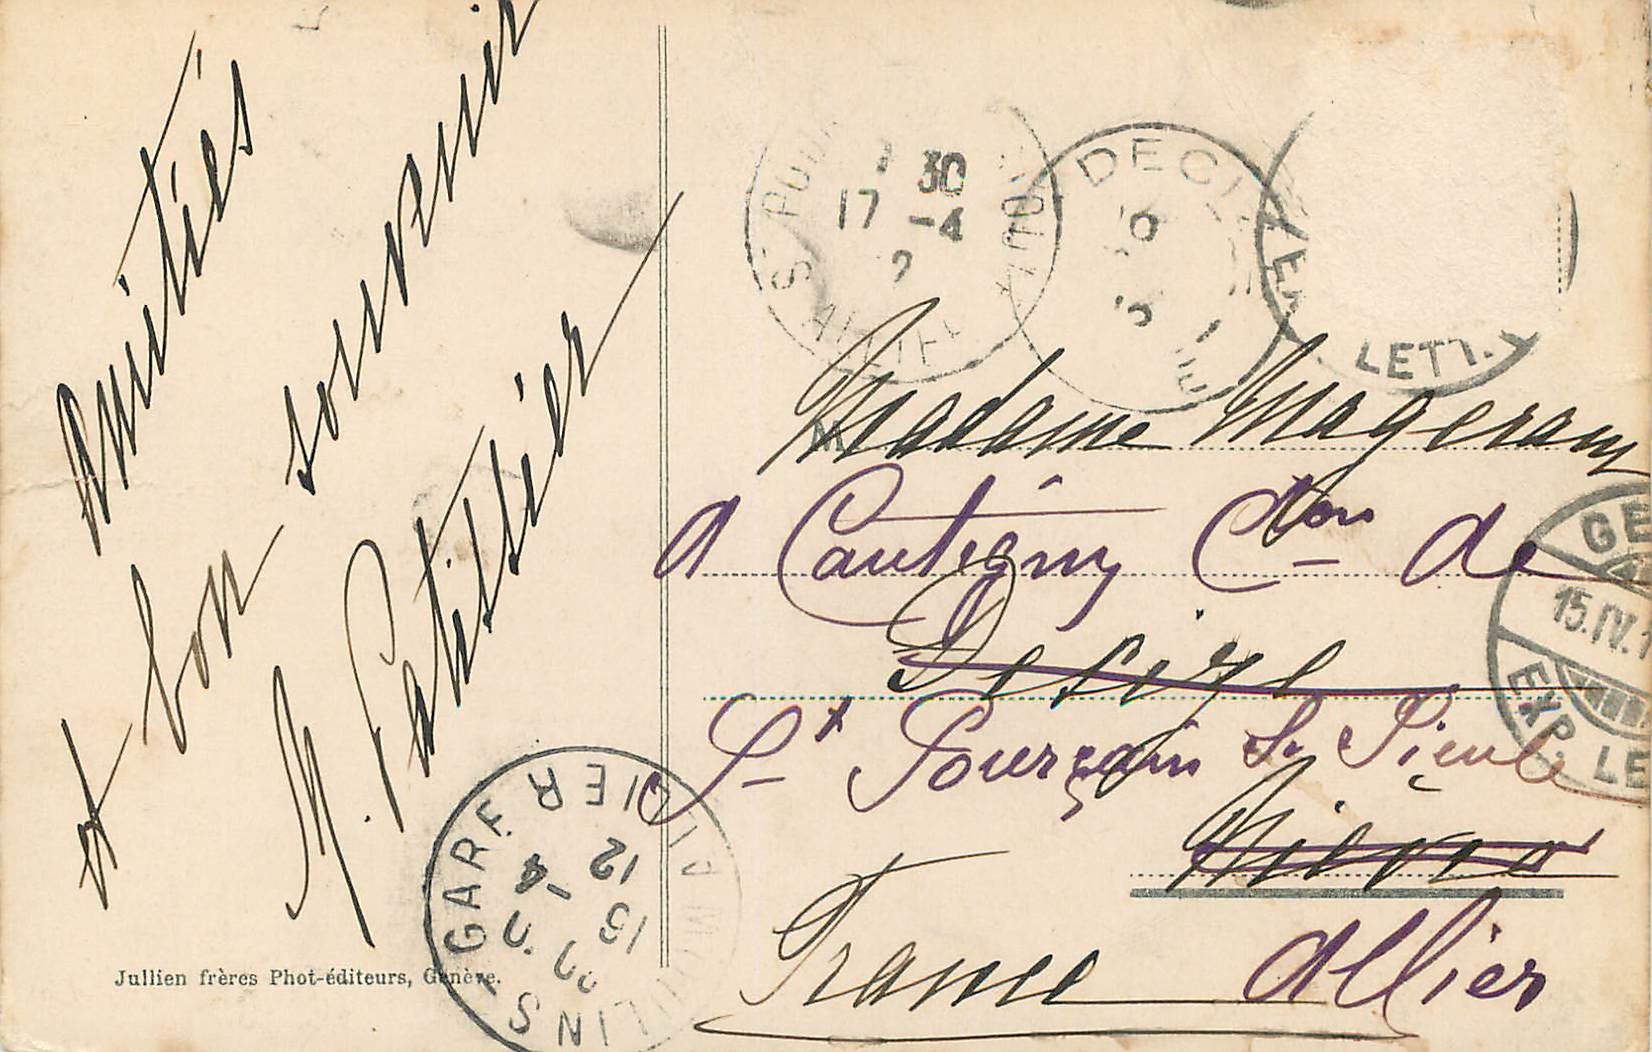 Amitiés
et bon souvenir
M. Patissier
Jullien frères Phot-éditeurs, Genève.
30
17 -4
ALLIER
DECI
LETT.
M
Madame Mageram
a Cantigny Con de
Decize
St Pourçain Sr Sioule
Nièvre
France Allier
GE
15.IV.1
EXP. LE
MOULINS GARE
12
15 -4